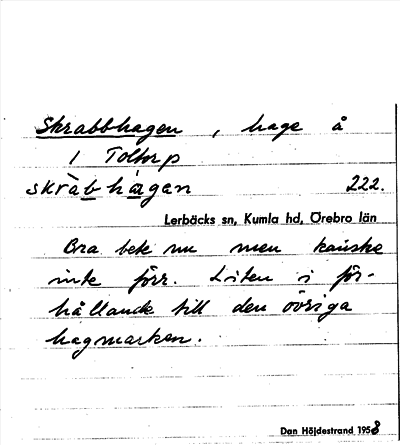 Skrabbhagen, hage å
1 Toltorp
skràbhàgan 222.
Lerbäcks sn, Kumla hd, Örebro län
Bra bete nu men kanske
inte förr. Liten i för-
hållande till den övriga
hagmarken.
Dan Höjdestrand 1958